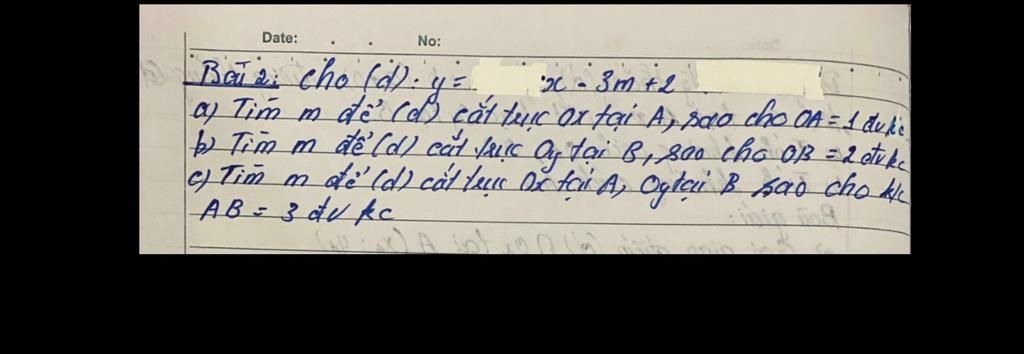 Date: . . No:
Bài 2: Cho (d): y = x - 3m + 2
a) Tìm m để (d) cắt trục Ox tại A, sao cho OA = 1 đvkc
b) Tìm m để (d) cắt trục Oy tại B, sao cho OB = 2 đvkc
c) Tìm m để (d) cắt trục Ox tại A, Oy tại B sao cho k/c
AB = 3 đvkc